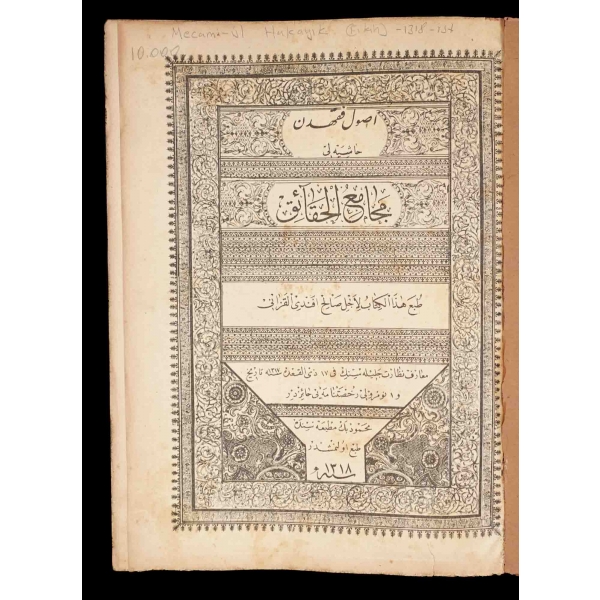 Mecami-ul Hakayik -1318-
10.000
اصول فقهدن
حاشیه لی
مجامع الحقائق
طبع هذا الكتاب لأجل صالح افندی القزانی
معارف نظارت جلیله سنك فی ١٧ ذی القعده تاریخ
و ١ نومرولی رخصتنامه سنی حائزدر
محمود بك مطبعه سنده
طبع اولنمشدر
سنه ١٣١٨